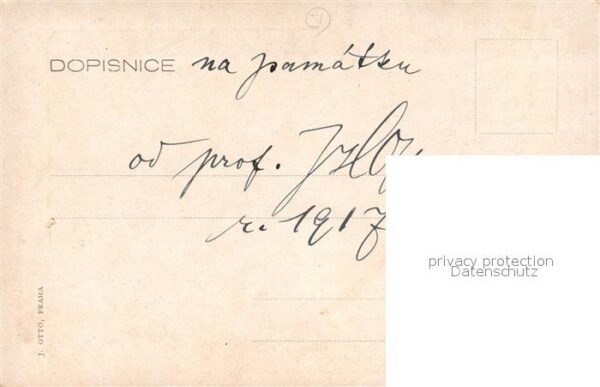 DOPISNICE na památku
od prof.
r. 1917
J. OTTO, PRAHA
privacy protection
Datenschutz